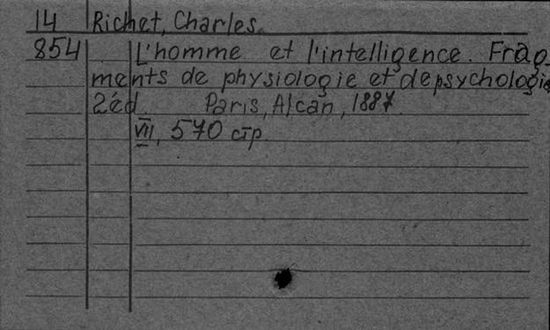 14 Richet, Charles.
854 L'homme et l'intelligence. Frag-
ments de physiologie et de psychologie
2éd Paris, Alcan, 1887.
VII, 570 стр